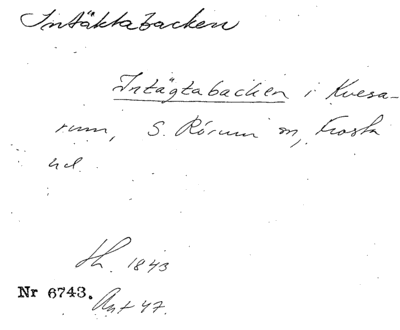 Intäktabacken
Intägtabacken i Kvesa-
rum, S. Rörum sn, Frosta
hd.
1843
Nr 6743. Ant 47.